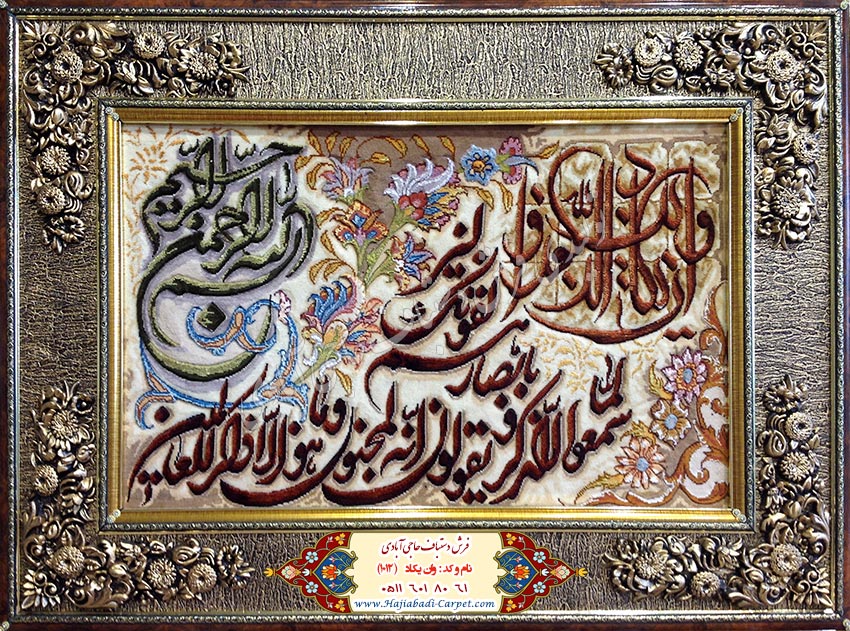 بسم الله الرحمن الرحیم
وان یکاد الذین کفروا
لیزلقونک
بابصارهم
لما سمعوا الذکر و یقولون انه لمجنون وما هو الا ذکر للعالمین
فرش دستباف حاجی آبادی
نام و کد: وان یکاد (۱۰۱۲)
۰۵۱۱ ۶۰۱ ۸۰ ۶۱
www.Hajiabadi-Carpet.com